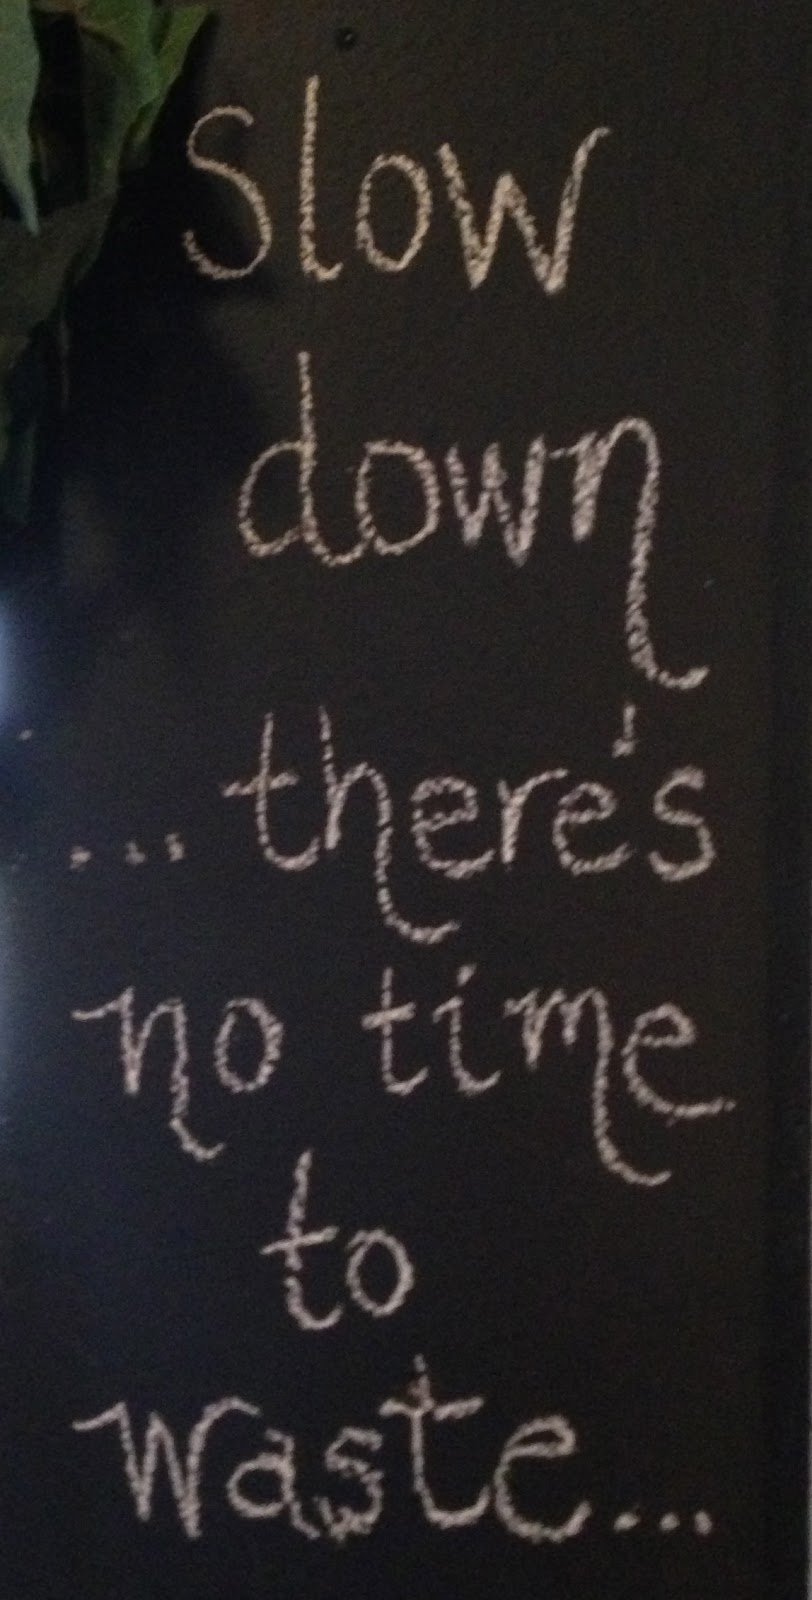 Slow
down
...there's
no time
to
waste...